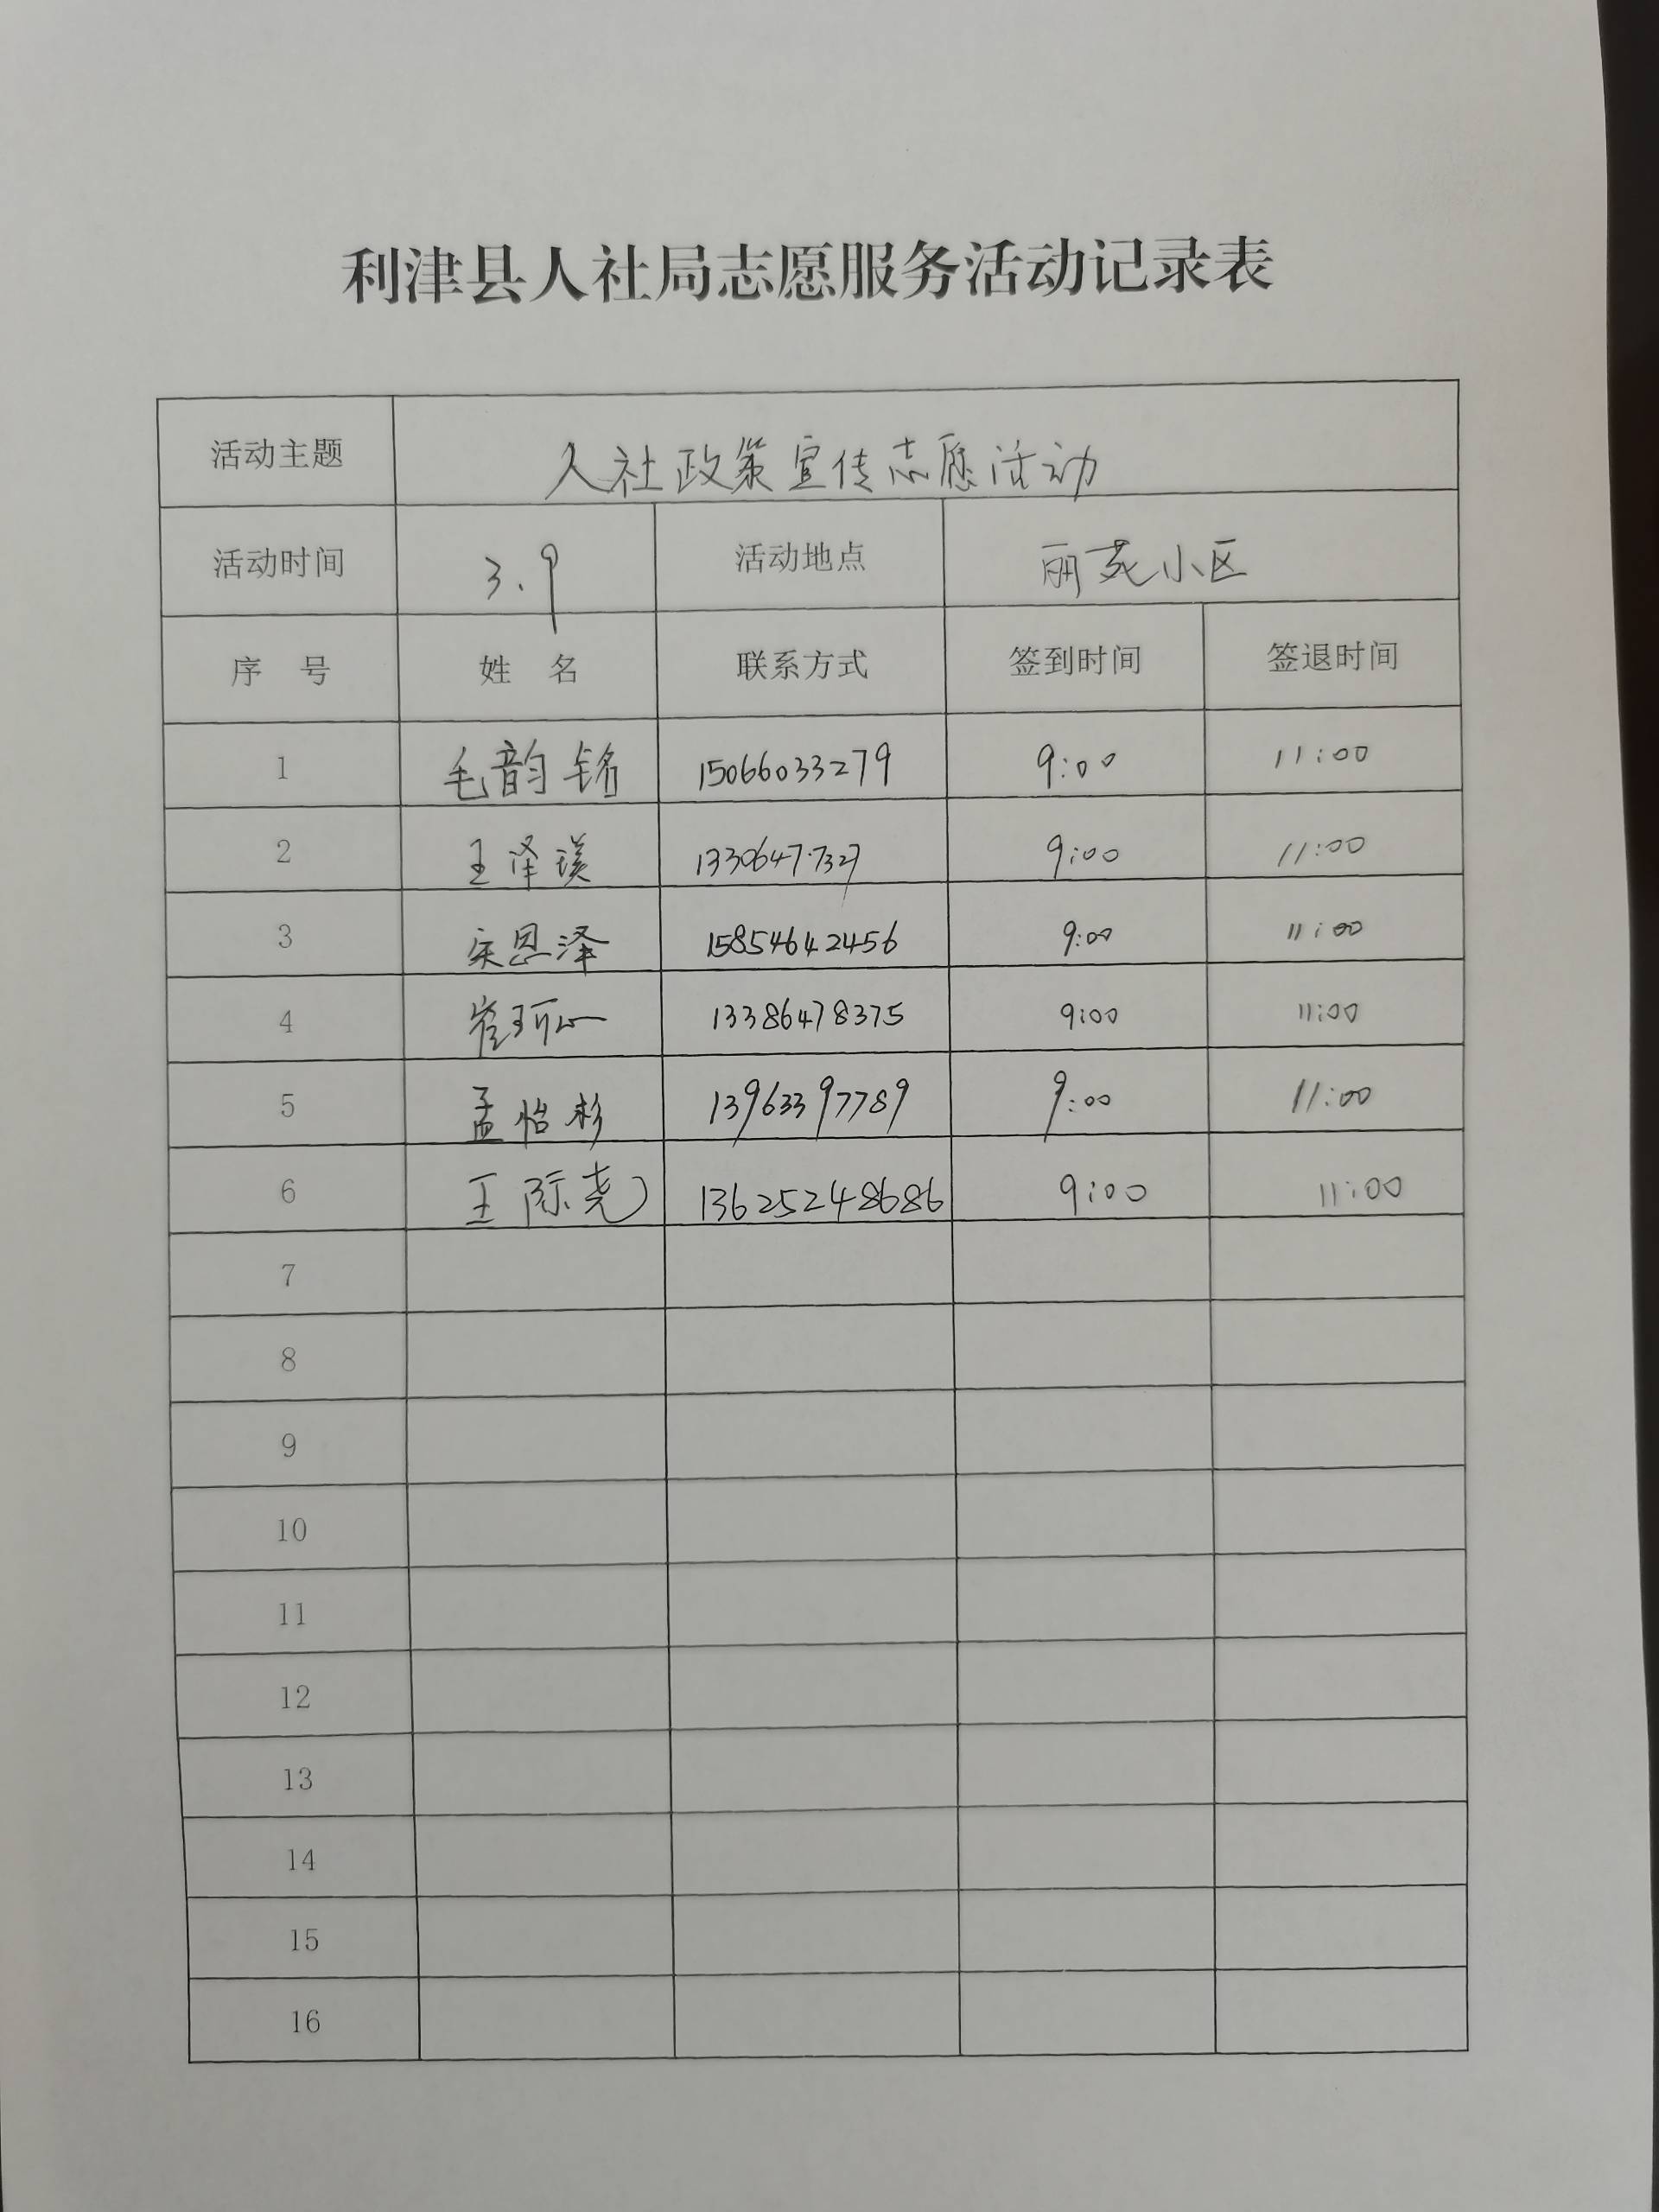 利津县人社局志愿服务活动记录表
活动主题 人社政策宣传志愿活动
活动时间 3.9 活动地点 丽苑小区
序 号 姓 名 联系方式 签到时间 签退时间
1 毛韵铭 15066033279 9:00 11:00
2 王泽瑛 9:00 11:00
3 宋恩泽 15854642456 9:00 11:00
4 13386478375 9:00 11:00
5 孟怡杉 13963397789 9:00 11:00
6 王际尧 13625248686 9:00 11:00
7
8
9
10
11
12
13
14
15
16